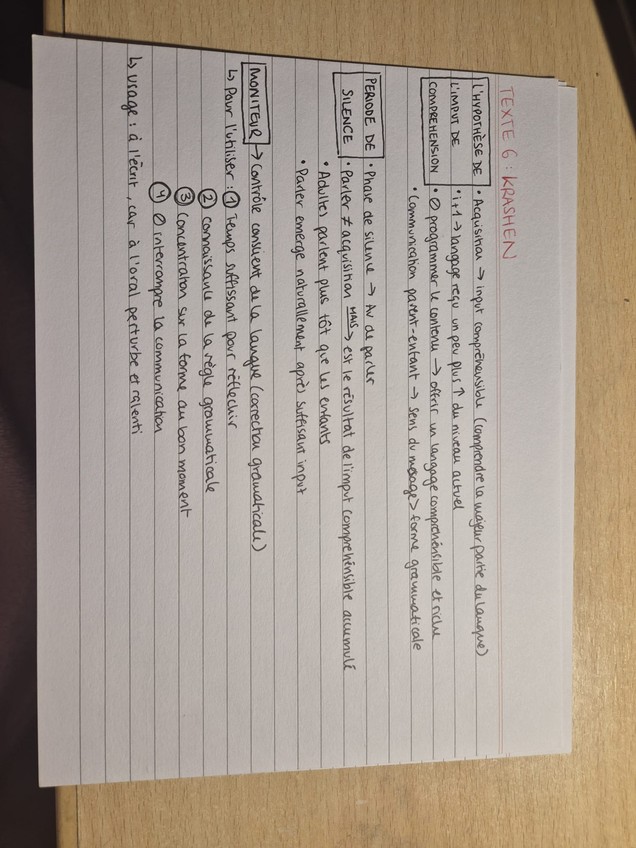 TEXTE 6 : KRASHEN
L'HYPOTHÈSE DE • Acquisition → input compréhensible (comprendre la majeur partie du langue)
L'IMPUT DE • i+1 → langage reçu un peu plus ↑ du niveau actuel
COMPREHENSION • ∅ programmer le contenu → offrir un langage compréhensible et riche
• Communication parent-enfant → sens du message > forme grammaticale
PERIODE DE • Phase de silence → Av de parler
SILENCE • Parler ≠ acquisition MAIS → est le résultat de l'imput compréhensible accumulé
• Adultes parlent plus tôt que les enfants
• Parler émerge naturellement après suffisant input
MONITEUR → Contrôle conscient de la langue (correction grammaticale)
↳ Pour l'utiliser : ① Temps suffisant pour réfléchir
② connaissance de la règle grammaticale
③ concentration sur la forme au bon moment
④ ∅ interrompre la communication
↳ usage : à l'écrit, car à l'oral perturbe et ralenti